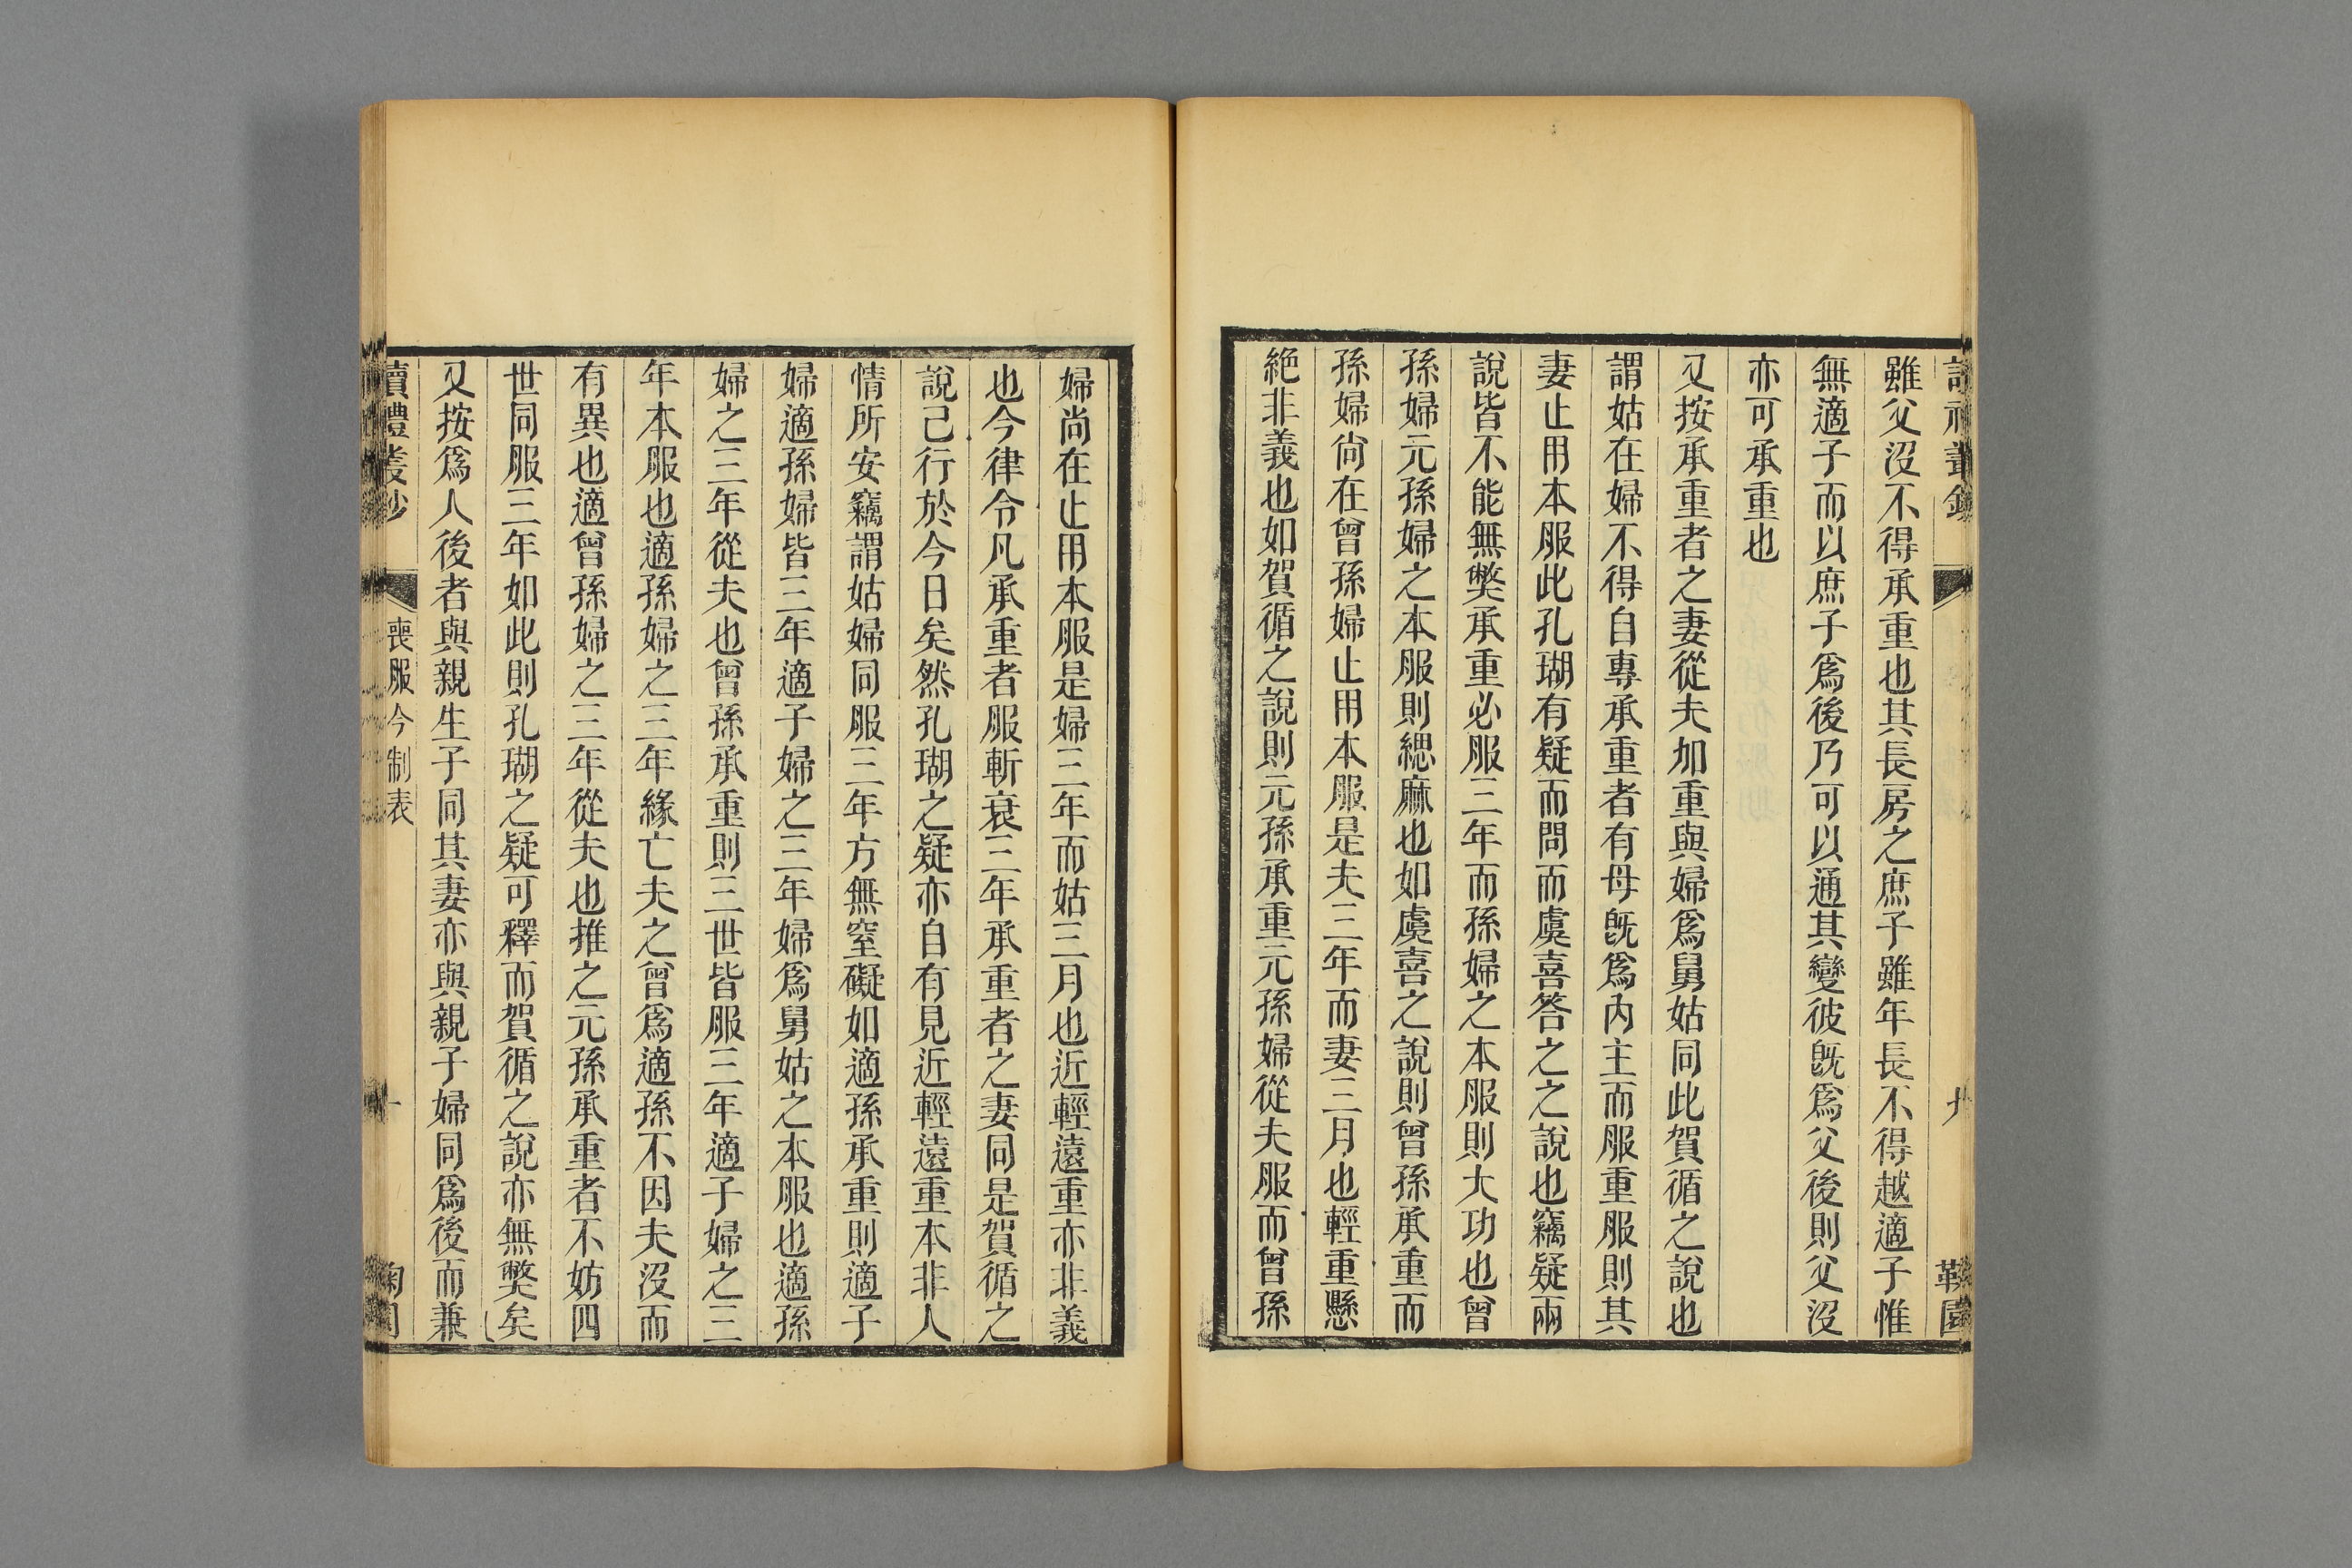 雖父沒不得承重也其長房之庶子雖年長不得越適子惟
無適子而以庶子爲後乃可以通其變彼旣爲父後則父沒
亦可承重也
又按承重者之妻從夫加重與婦爲舅姑同此賀循之說也
謂姑在婦不得自專承重者有母旣爲內主而服重服則其
妻止用本服此孔瑚有疑而問而虞喜答之之說也竊疑兩
說皆不能無獘承重必服三年而孫婦之本服則大功也曾
孫婦元孫婦之本服則緦麻也如虞喜之說則曾孫承重而
孫婦尙在曾孫婦止用本服是夫三年而妻三月也輕重懸
絶非義也如賀循之說則元孫承重元孫婦從夫服而曾孫
婦尚在止用本服是婦三年而姑三月也近輕遠重亦非義
也今律令凡承重者服斬衰三年承重者之妻同是賀循之
說已行於今日矣然孔瑚之疑亦自有見近輕遠重本非人
情所安竊謂姑婦同服三年方無窒礙如適孫承重則適子
婦適孫婦皆三年適子婦之三年婦爲舅姑之本服也適孫
婦之三年從夫也曾孫承重則三世皆服三年適子婦之三
年本服也適孫婦之三年緣亡夫之曾爲適孫不因夫沒而
有異也適曾孫婦之三年從夫也推之元孫承重者不妨四
世同服三年如此則孔瑚之疑可釋而賀循之說亦無獘矣
又按爲人後者與親生子同其妻亦與親子婦同爲後而兼
喪服今制表